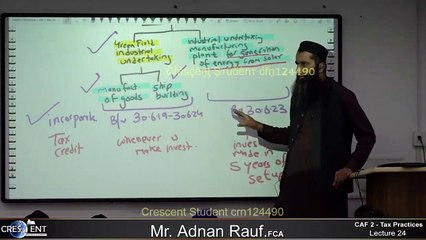 Green Field
industrial
undertaking
industrial undertaking
manufacturing
plant for generation
of energy from solar
Crescent Student crn124490
manufact
of goods
ship
building
incorporate
B/w 30.6.19-30.6.24
30.6.23
Tax
credit
whenever u
make invest.
invest
made in
5 years of
setup
CRESCENT
Crescent Student crn124490
Mr. Adnan Rauf.FCA
CAF 2 - Tax Practices
Lecture 24